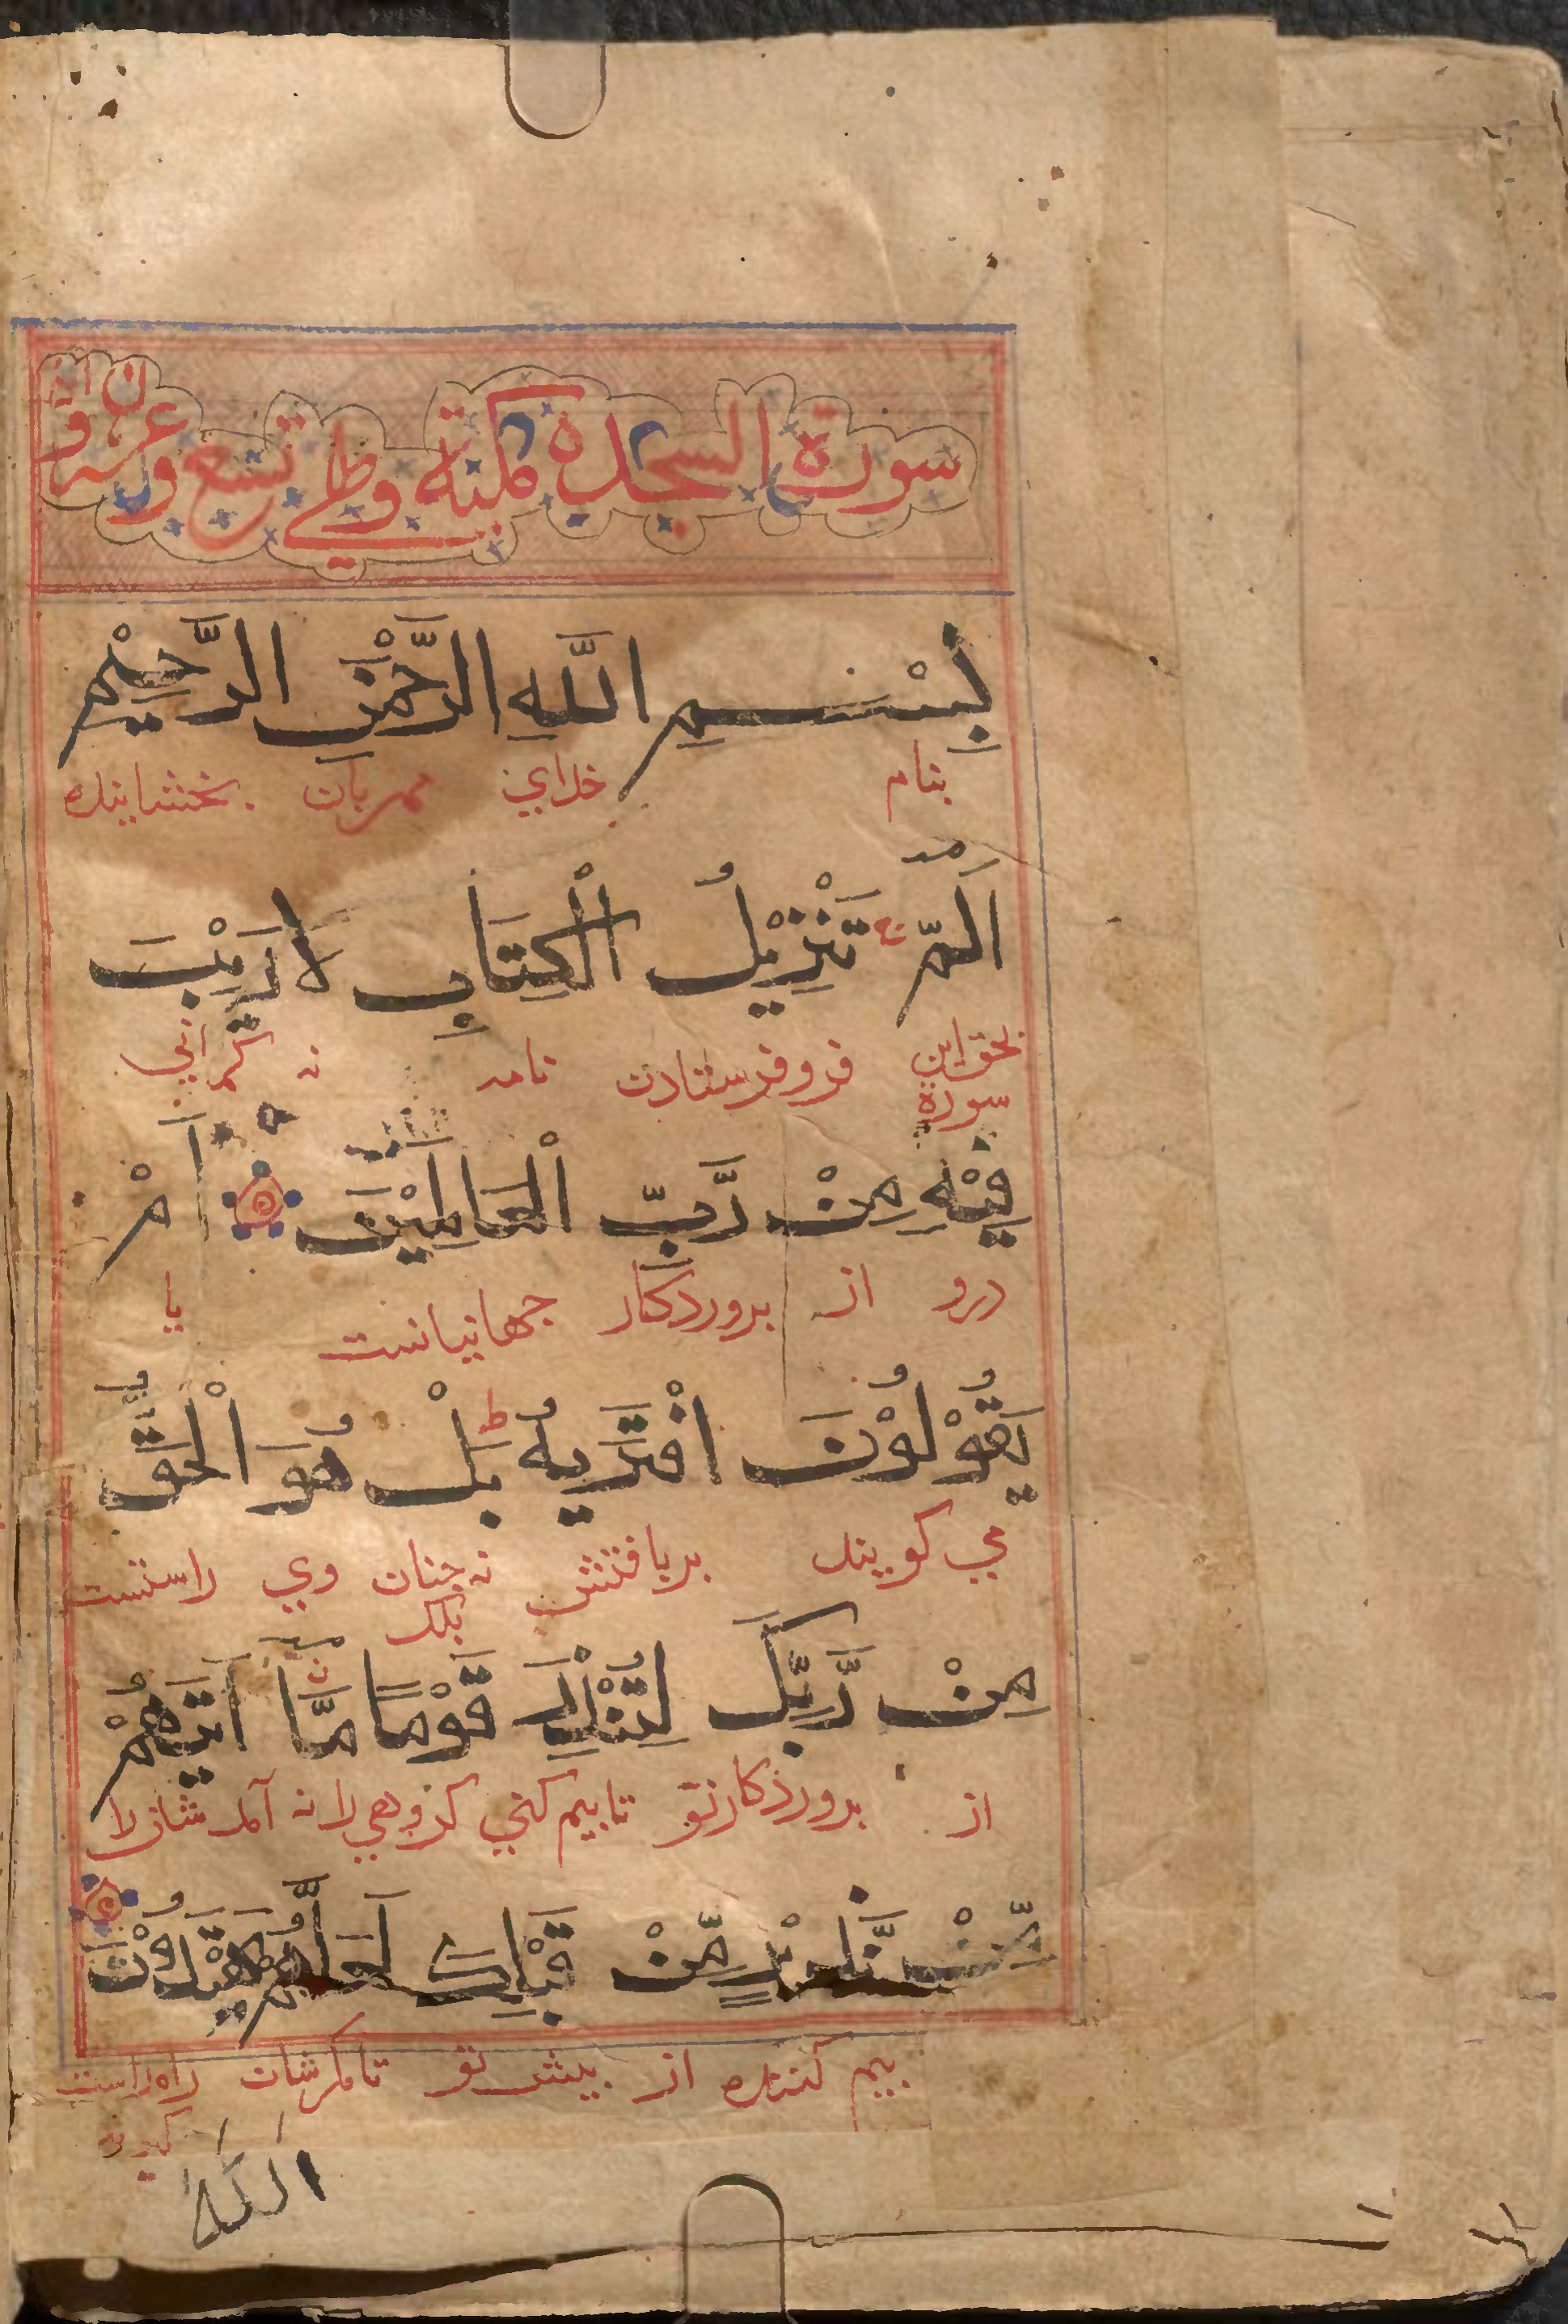 سورة السجدة مكية وهي تسع وعشرون آية
بِسْمِ اللَّهِ الرَّحْمٰنِ الرَّحِيْمِ
بنام خداي مهربان بخشاينده
الٓمّٓ ج تَنْزِيْلُ الْكِتَابِ لَا رَيْبَ
بحق اين سورة فروفرستادن نامه نه گماني
فِيْهِ مِنْ رَّبِّ الْعَالَمِيْنَ اَمْ
درو از بروردكار جهانيانست يا
يَقُوْلُوْنَ افْتَرٰيهُ ط بَلْ هُوَ الْحَقُّ
مي كويند بربافتش نه جنان بلك وي راستست
مِنْ رَّبِّكَ لِتُنْذِرَ قَوْمًا مَّآ اَتٰيهُمْ
از بروردكارتو تابيم كني كروهي را نه آمد شان را
مِّنْ نَّذِيْرٍ مِّنْ قَبْلِكَ لَعَلَّهُمْ يَهْتَدُوْنَ
بيم كننده از بيش تو تامكرشان راه راست
كيرند
اللَّهُ